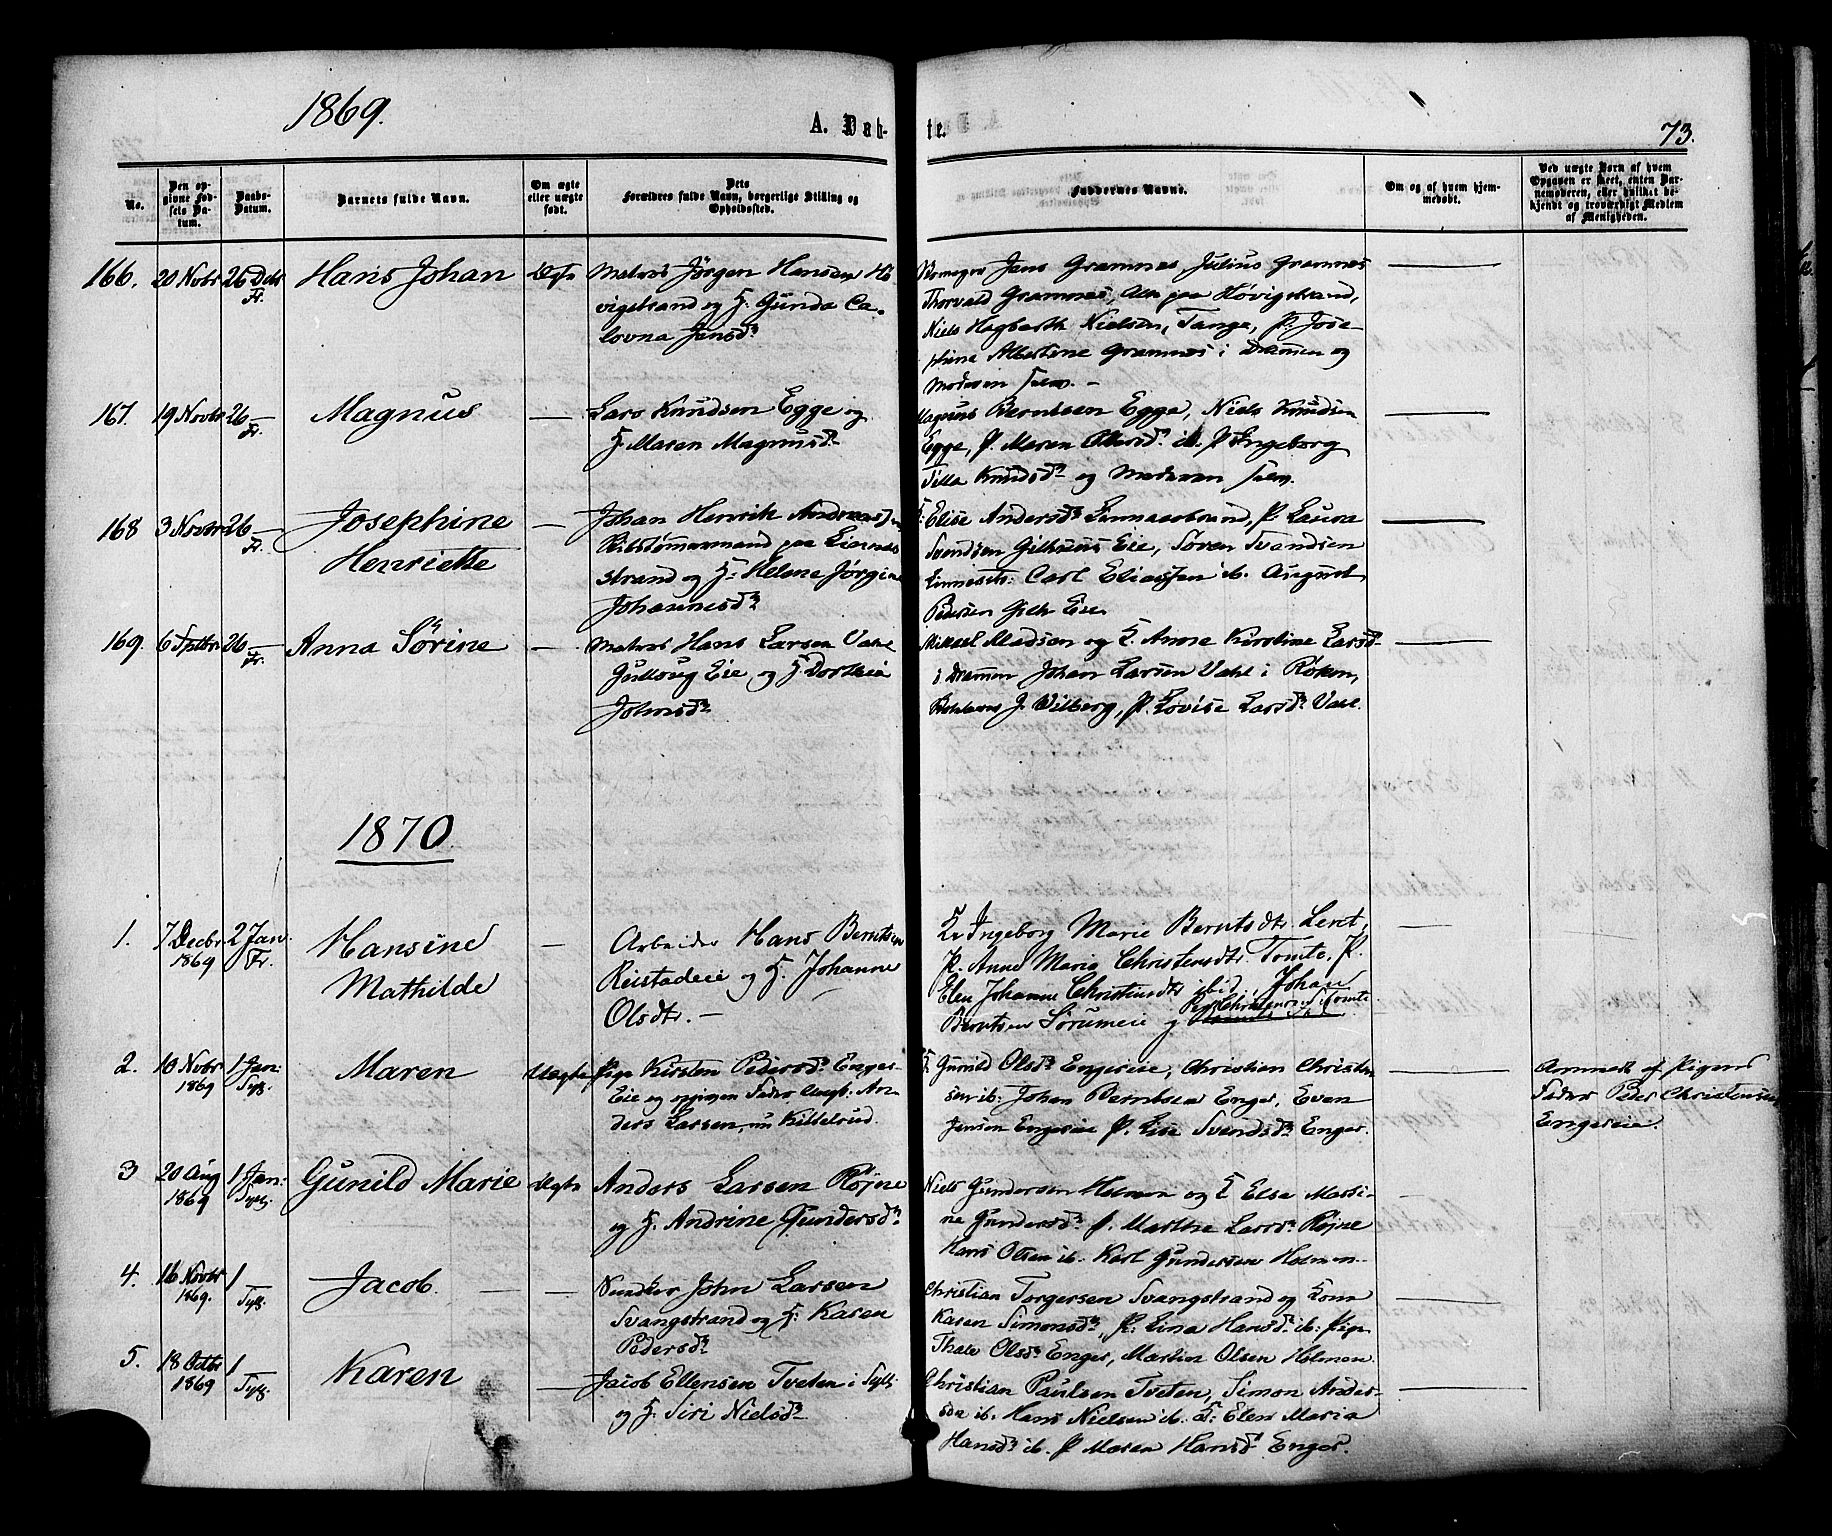 1869.
A. Døb-
te.
73.
No.
Den op-
givne Fød-
sels Da-
tum.
Daabs-
Datum.
Barnets fulde Navn.
Om ægte
eller uægte
født.
Dets
Forældres fulde Navn, borgerlige Stilling og
Opholdssted.
Faddernes Navne.
Om og af hvem hjem-
medøbt.
Ved uægte Børn af hvem
Opgaven er skeet, enten Bar-
nemoderen, eller hvilket be-
kjendt og troværdigt Medlem
af Menigheden.
166. 20 Novbr 26 Decbr Fr. Hans Johan Ægte
Matros Jörgen Hansen Hö-
vigstrand og H. Gunda Ca-
lovna Jensdr
Jens Gramnæs Julius Gramnæs
Thorvald Gramnæs, Alle paa Hövigstrand,
Niels Hagbarth Nielsen, Tange, P. Jose-
phine Albertine Gramnæs i Drammen og
Moderen selv. —
167. 19 Novbr 26 — Fr. Magnus —
Lars Knudsen Egge og
H. Maren Magnusdr
Magnus Berntsen Egge, Niels Knudsen
Egge, P. Maren Olersdr ib. P. Ingeborg
Tilla Knudsdr og Moderen selv.
168 3 Novbr 26 — Fr. Josephine —
Henriette
Johan Henrik Andreasen
paa Liernes
strand og H. Helene Jörgine
Johannesdr
K. Elise Andersdr Linnæsstrand, P. Laura
Svendsen Gilhuus Eie, Sören Svendsen
Linnæsstr: Carl Eliassen ib. August
Pedersen Gilh Eie
169. 6 Septbr 26 — Fr. Anna Sörine —
Matros Hans Larsen Vahl
Gullaug Eie, og H. Dorthea
Johnsdr
Mikael Madsen og K. Anne Kirstine Larsdr
i Drammen Johan Larsen Vahl i Röken,
J. Wilberg, P. Lovise Larsdr Vahl.
1870
1. 7 Decbr 1869 2 Jan. Fr. Hansine —
Mathilde
Arbeider Hans Berntsen
Reistadeie og H. Johanne
Olsdtr. —
K. Ingeborg Marie Berntsdtr Leret,
P. Anne Marie Christensdtr. Tomte, P.
Elen Johanne Christensdtr ibid, Johan
Berntsen Sörumeie og
2. 10 Novbr 1869 1 Jan: Sylt. Maren Uægte
Pige Kirsten Pedersdr Enger-
Eie og opgiven Fader Ungk: An-
ders Larsen, nu Kittelrud.
K Gunild Olsdr Engereie, Christian Christen
sen ib: Johan Berntsen Enger, Even
Jensen Engereie P. Lise Svendsdr Enger.
Anmeldt af Pigens
Fader Peder Christensen
Engereie.
3 20 Aug 1869 1 Jan: Sylt. Gunild Marie Ægte
Anders Larsen Röine
og H. Andrine Gundersdr
Niels Gundersen Holmen og K Else Massi-
ne Gundersdr P. Marthe Larsdr Röine
Hans Olsen ib. Karl Gundersen Holmen.
4. 16 Novbr 1869. 1 Sylt. Jacob. — —
Snedker John Larsen
Svangstrand og H: Karen
Pedersdr
Christian Torgersen Svangstrand og Kone
Karen Simonsdr, P: Lina Hansdr ib: Pige
Thale Olsdr Enger, Martin Olsen Holmen.
5. 18 Octbr 1869 1 Sylt. Karen —
Jacob Ellensen Tveten i Sylt:
og H. Siri Nielsdr
Christian Paulsen Tveten, Simon Ander-
sen ib. Hans Nielsen ib. K: Elen Maria
Hansdr ib. P Maren Hansdr Enger.